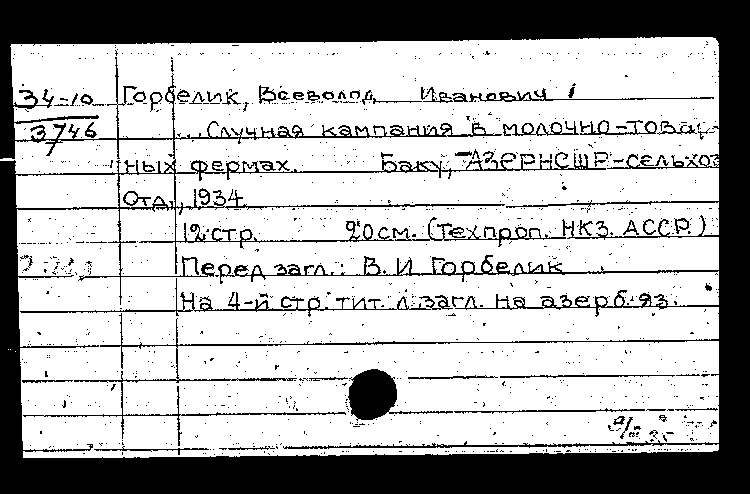 34-10 Горбелик, Всеволод Иванович 1
3746 ...Случная кампания в молочно-товар-
ных фермах. Баку, АЗЕРНЕШР-сельхоз
отд., 1934.
12 стр. 20 см. (Техпроп. НКЗ. АССР.)
Перед загл.: В. И. Горбелик
На 4-й стр. тит. л. загл. на азерб. яз.